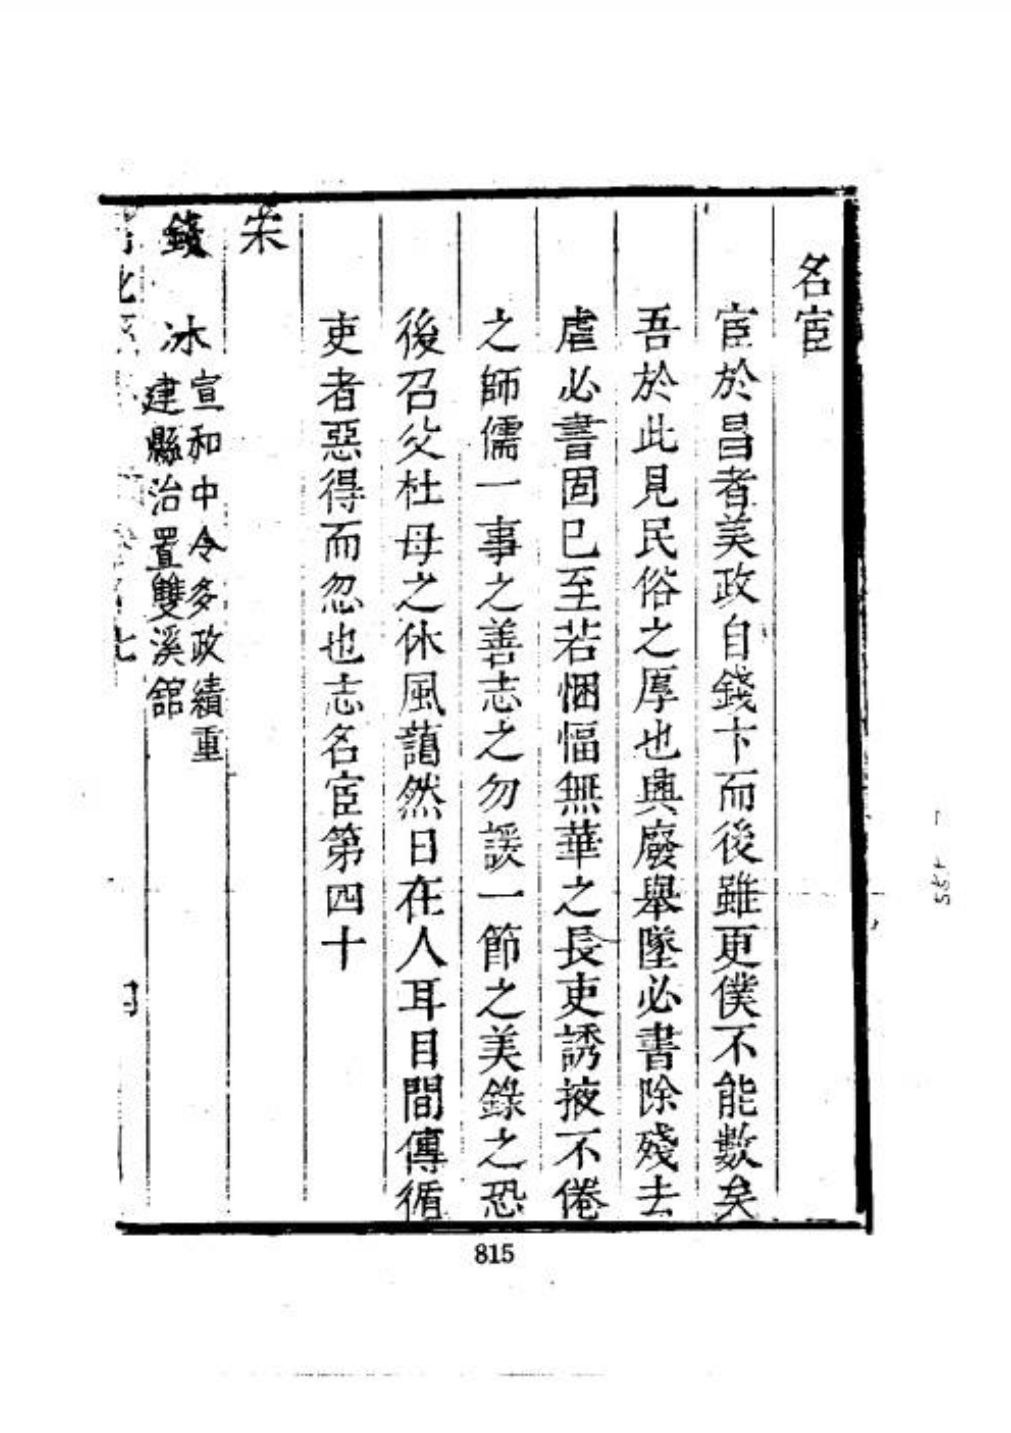 名宦
宦於昌者美政自錢卞而後雖更僕不能數矣
吾於此見民俗之厚也興廢舉墜必書除殘去
虐必書固已至若悃愊無華之長吏誘掖不倦
之師儒一事之善志之勿諼一節之美錄之恐
後召父杜母之休風藹然日在人耳目間傳循
吏者惡得而忽也志名宦第四十
宋
錢冰
宣和中令多政績重
建縣治置雙溪館
815